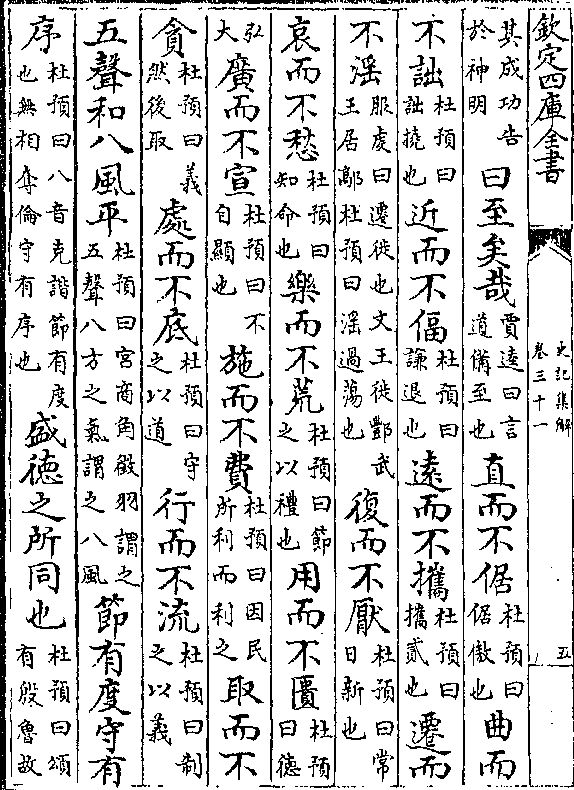 欽定四庫全書
史記集解
卷三十一
五
其成功告於神明曰至矣哉賈逵曰言道備至也直而不倨杜預曰倨傲也曲而
不詘杜預曰詘撓也近而不偪杜預曰謙退也遠而不攜杜預曰攜貳也遷而
不滛服虔曰遷徙也文王徙酆武王居鄗杜預曰滛過蕩也復而不厭杜預曰常日新也
哀而不愁杜預曰知命也樂而不荒杜預曰節之以禮也用而不匱杜預曰德
弘大廣而不宣杜預曰不自顯也施而不費杜預曰因民所利而利之取而不
貪杜預曰義然後取處而不底杜預曰守之以道行而不流杜預曰制之以義
五聲和八風平杜預曰宮商角徵羽謂之五聲八方之氣謂之八風節有度守有
序杜預曰八音克諧節有度也無相奪倫守有序也盛德之所同也杜預曰頌有殷魯故